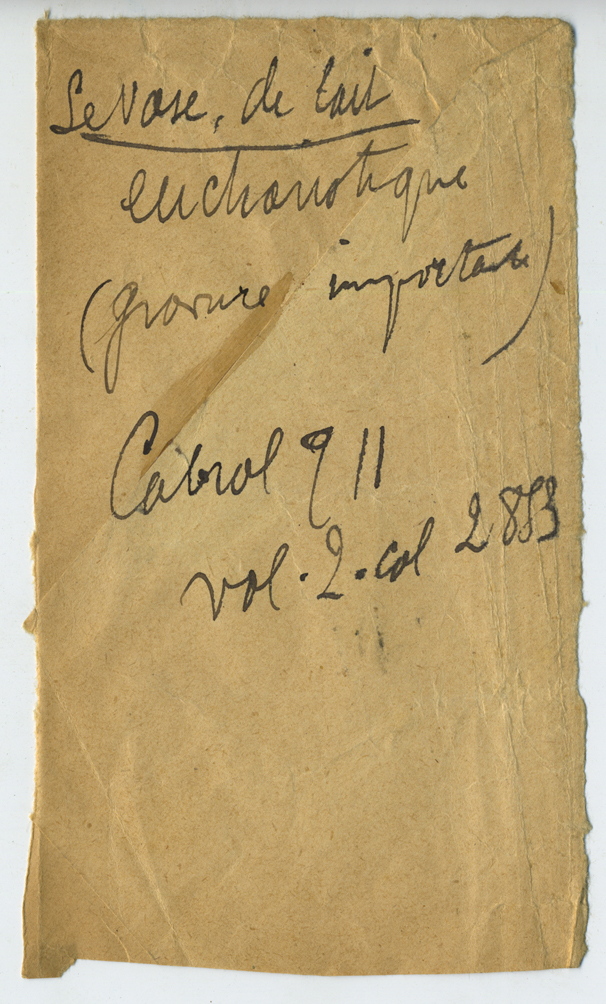 Le Vase, de lait
eucharistique
(gravure importante)
Cabrol 9 11
vol. 2. col 2853